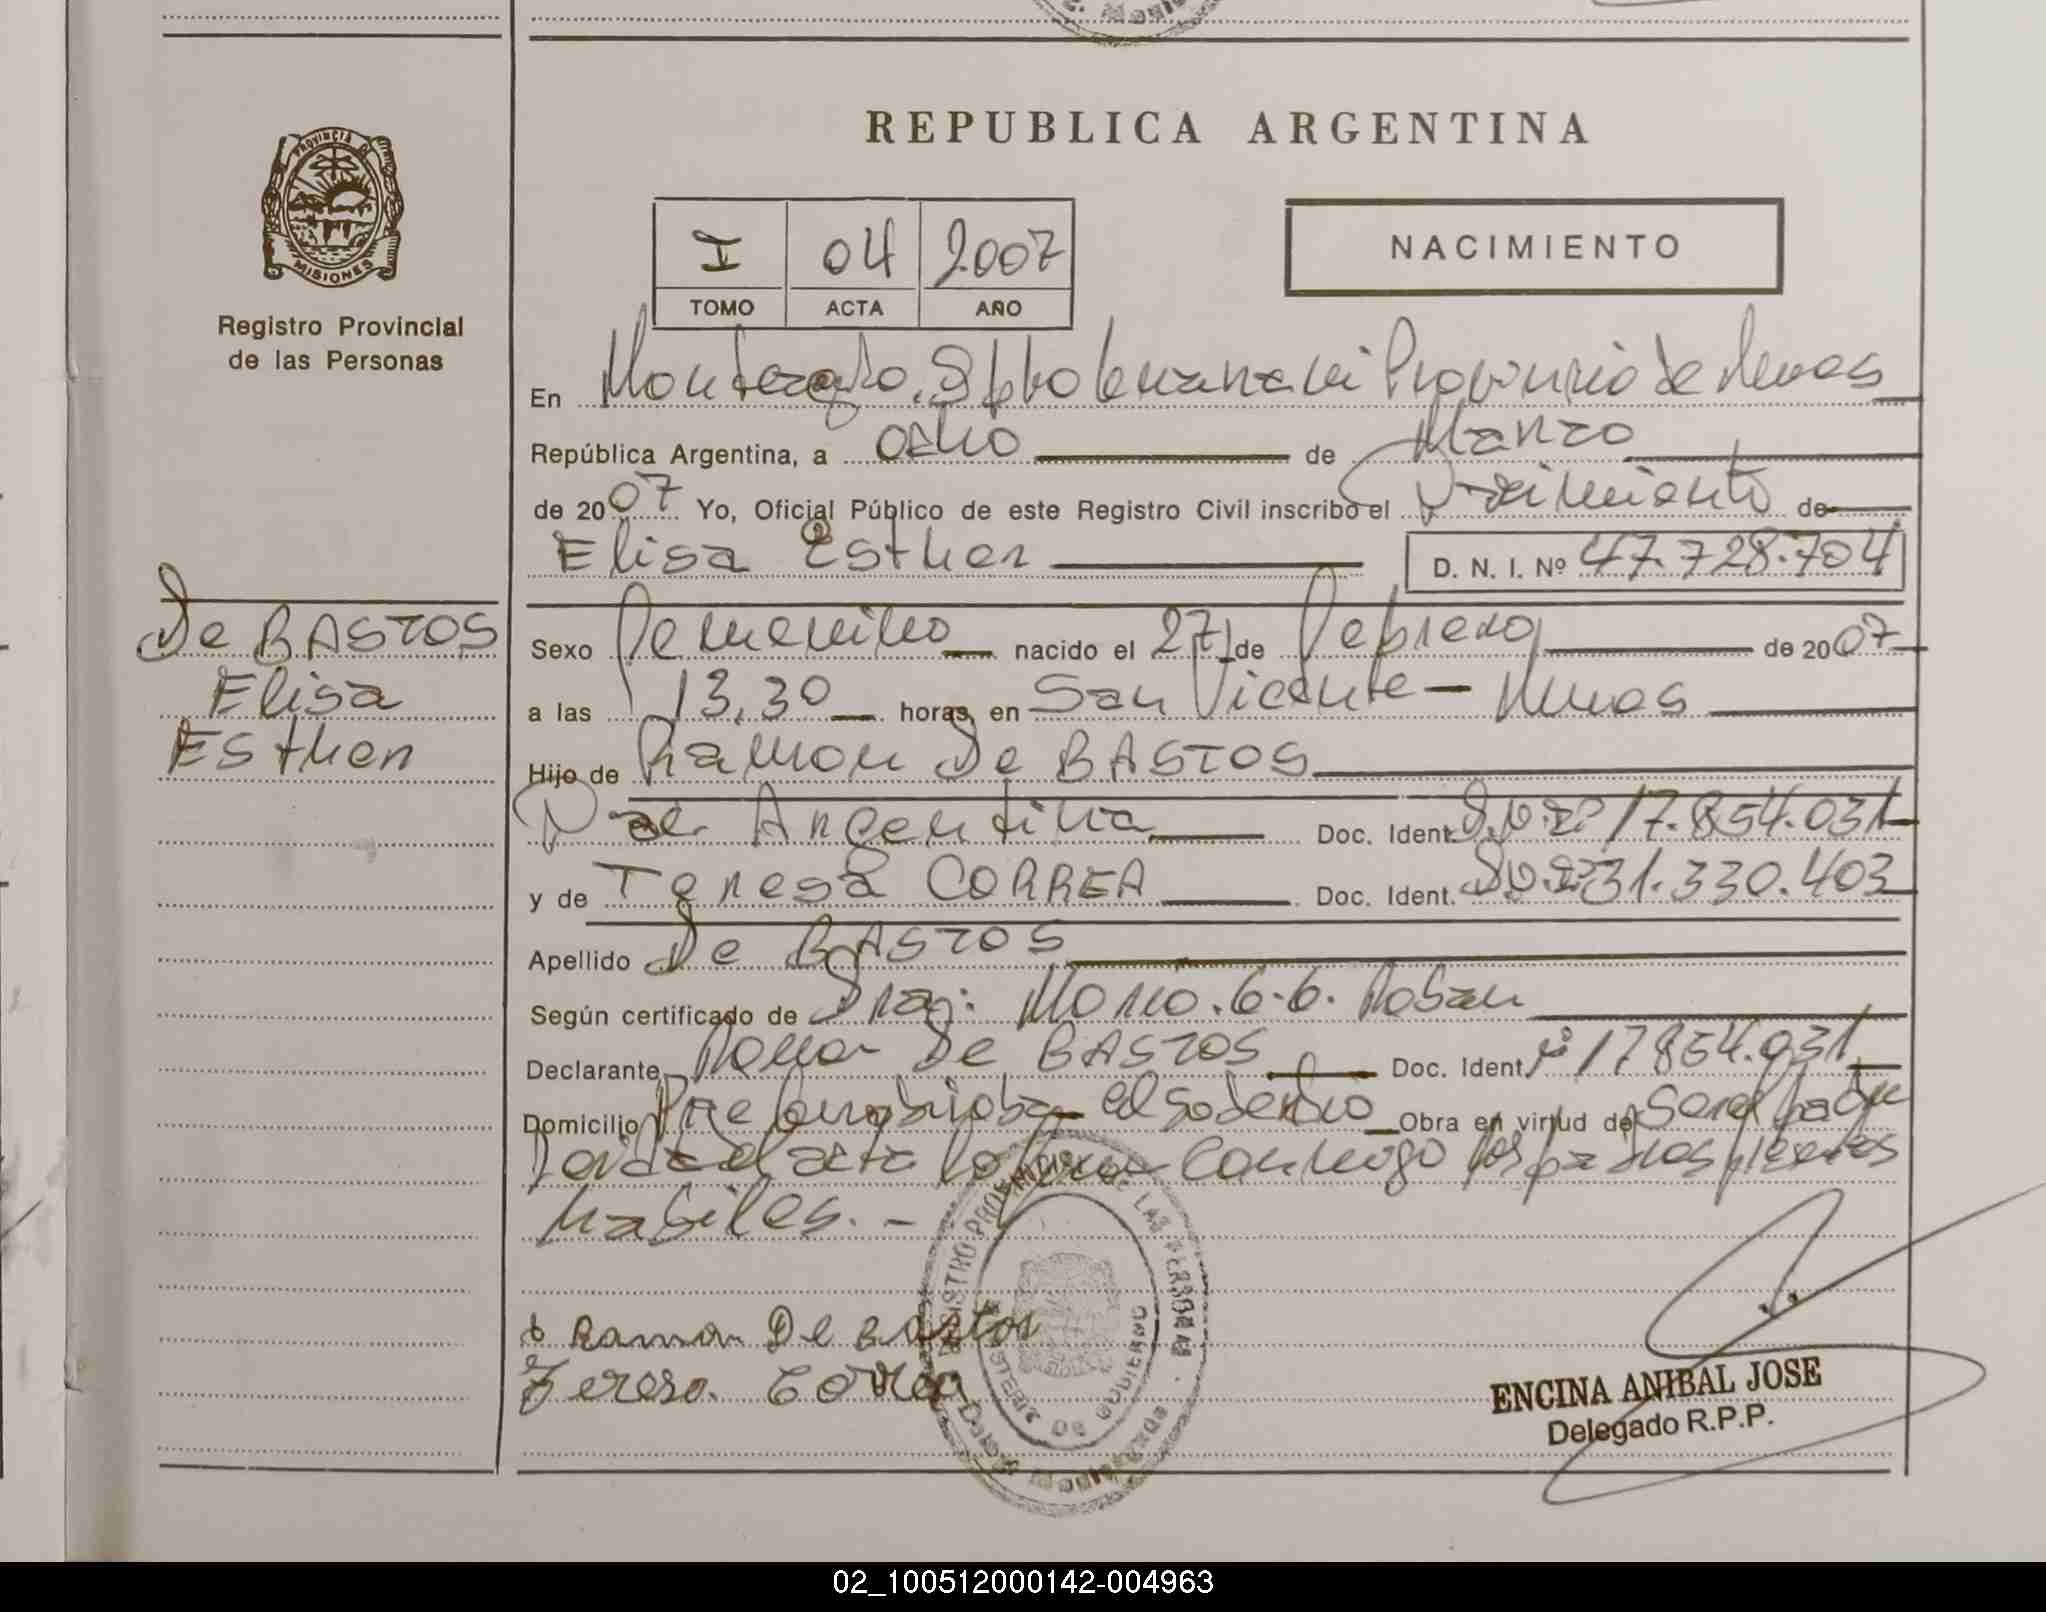 REPUBLICA ARGENTINA
PROVINCIA DE
MISIONES
Registro Provincial
de las Personas
I 04 2007
TOMO ACTA AÑO
NACIMIENTO
En Provincia de
República Argentina, a ocho de Marzo
de 2007 Yo, Oficial Público de este Registro Civil inscribo el Nacimiento de
Elisa Esther D. N. I. Nº 47.728.704
De BASTOS
Elisa
Esther
Sexo Femenino nacido el 27 de Febrero de 2007
a las 13,30 horas, en San Vicente - Mnes
Hijo de Ramon De BASTOS
Nac. Argentina Doc. Ident. 17.854.031
y de Teresa CORREA Doc. Ident. 31.330.403
Apellido De BASTOS
Según certificado de
Declarante Ramon De BASTOS Doc. Ident. Nº 17854.031
Domicilio Obra en virtud de Ser el padre
Leida el acta la firman conmigo los padres
habiles.-
Ramon De Bastos
Teresa Correa
REGISTRO PROVINCIAL DE LAS PERSONAS
MINISTERIO DE GOBIERNO
ENCINA ANIBAL JOSE
Delegado R.P.P.
02_100512000142-004963